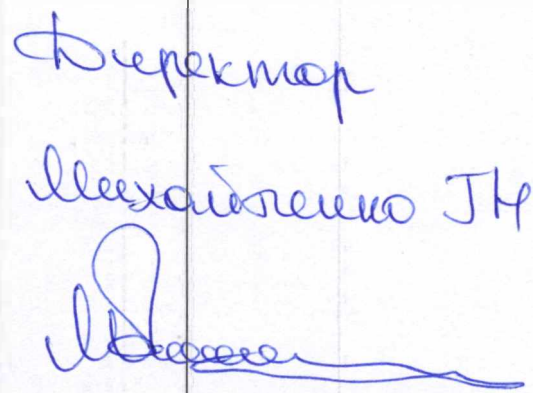 Директор
Михайленко ГН